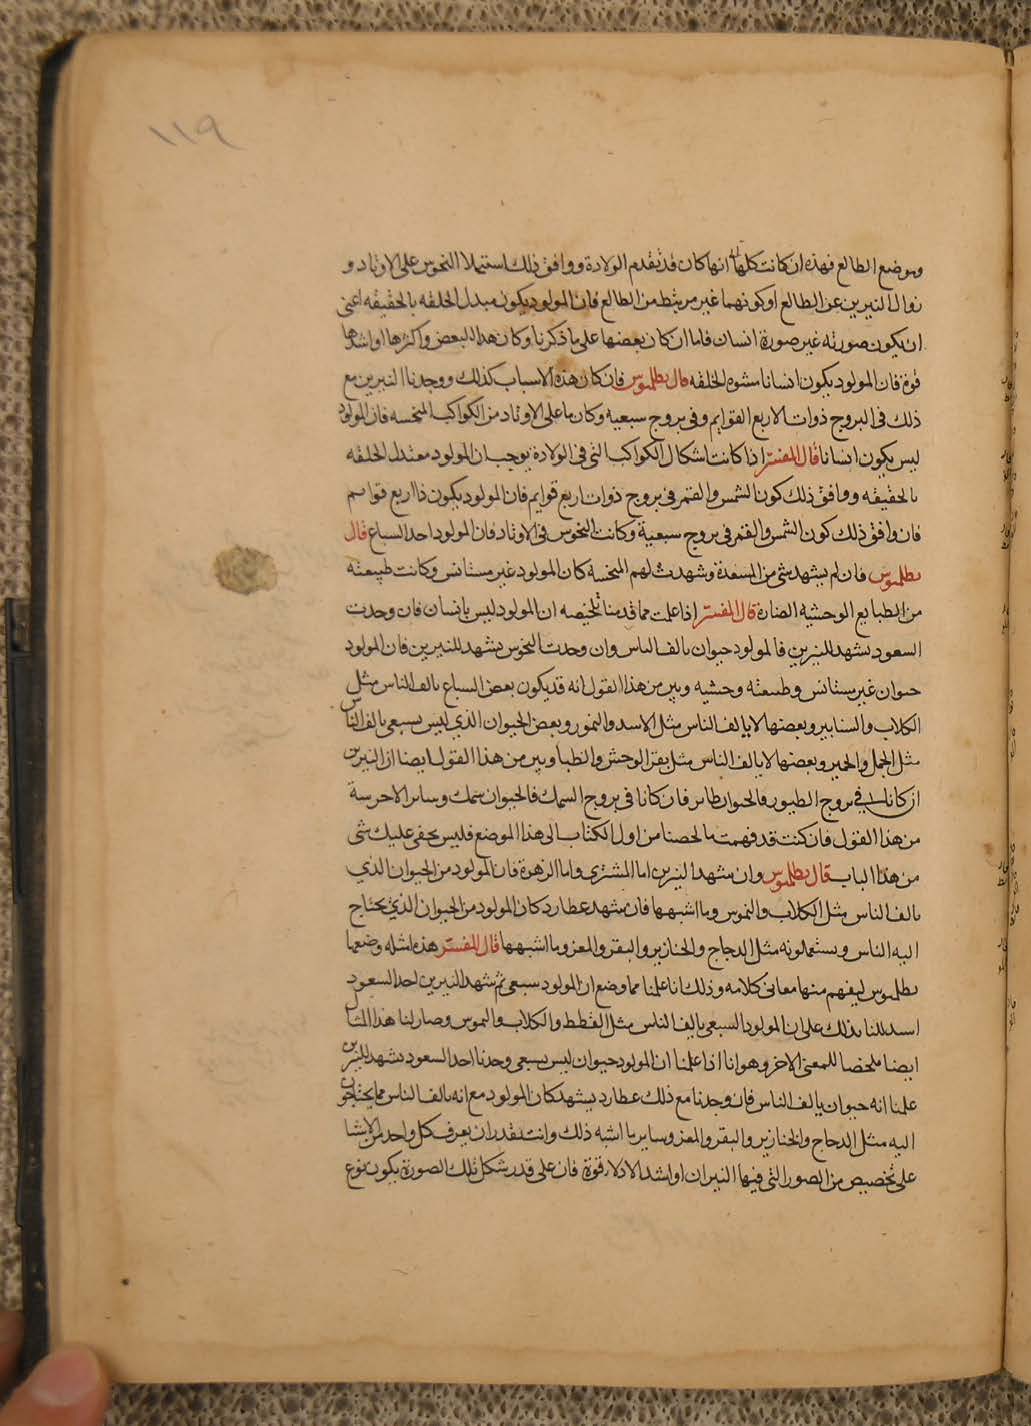 ١١٩
وموضع الطالع فهذه ان كانت كلها انها كان قد تقدم الولادة ووافق ذلك استيلا النحوس على الاوتاد و
زوال النيرين عن الطالع او كونهما غير مرتبط من الطالع فان المولود يكون مبدل الخلقه بالحقيقه اعنى
ان يكون صورته غير صورة انسان فاما ان كان بعضها على ما ذكرنا وكان هذا البعض واكثرها او اشدها
قوة فان المولود يكون انسانا مشوه الخلقه قال بطلميوس فان كان هذه الاسباب كذلك ووجدنا النيرين مع
ذلك فى البروج ذوات الاربع القوايم وفى بروج سبعيه وكان ما على الاوتاد من الكواكب المنحسه فان المولود
ليس يكون انسانا قال المفسر اذا كانت اشكال الكواكب التى فى الولادة يوجب ان المولود معتدل الخلقه
بالحقيقه ووافق ذلك كون الشمس والقمر فى بروج ذوات اربع قوايم فان المولود يكون ذا اربع قوايم
فان وافق ذلك كون الشمس والقمر فى بروج سبعية وكانت النحوس فى الاوتاد فان المولود احد السباع قال
بطلميوس فان لم يشهد شى من المسعدة وشهدت لهم المنحسة كان المولود غير مستانس وكانت طبيعته
من الطبايع الوحشيه الضارة قال المفسر اذا علمت مما قدمنا تلخيصه ان المولود ليس بانسان فان وجدت
السعود يشهد للنيرين فالمولود حيوان يالف الناس وان وجدت النحوس يشهد للنيرين فان المولود
حيوان غير مستانس وطبيعته وحشيه وبين من هذا القول انه قد يكون بعض السباع يالف الناس مثل
الكلاب والسنانير وبعضها لا يالف الناس مثل الاسد والنمور وبعض الحيوان الذي ليس بسبعى يالف الناس
مثل الجمل والحمير وبعضها لا يالف الناس مثل بقر الوحش والظبا وبين من هذا القول ايضا ان النيرين
ان كانا فى بروج الطيور فالحيوان طاير فان كانا فى بروج السمك فالحيوان سمك وساير الاخر
من هذا القول فان كنت قد فهمت ما لخصنا من اول الكتاب الى هذا الموضع فليس يخفى عليك شى
من هذا الباب قال بطلميوس وان شهد النيرين اما المشترى واما الزهرة فان المولود من الحيوان الذي
يالف الناس مثل الكلاب والنموس وما اشبهها فان شهد عطارد كان المولود من الحيوان الذي يحتاج
اليه الناس ويستعملونه مثل الدجاج والخنازير والبقر والمعز وما اشبهها قال المفسر هذه امثله وضعها
بطلميوس ليفهم منها معانى كلامه وذلك انا علمنا مما وضع ان المولود سبعى ثم شهد النيرين احد السعود
استدللنا بذلك على ان المولود السبعى يالف الناس مثل القطط والكلاب والنموس وصار لنا هذا المثال
ايضا ملخصا للمعنى الاخر وهو انا اذا علمنا ان المولود حيوان ليس بسبعى وجدنا احد السعود يشهد للنيرين
علمنا انه حيوان يالف الناس فان وجدنا مع ذلك عطارد يشهد كان المولود مع انه يالف الناس مما يحتاجون
اليه مثل الدجاج والخنازير والبقر والمعز وساير ما اشبه ذلك وانت تقدر ان يعرف كل واحد من الاشيا
على تخصيص من الصور التى فيها النيران او اشد الادلا قوة فان على قدر شكل تلك الصورة يكون نوع